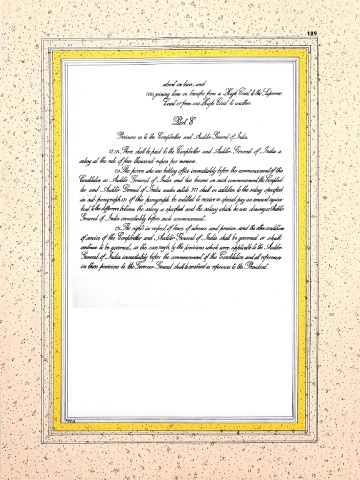 189
ation on leave; and
(iii) joining time on transfer from a High Court to the Supreme
Court or from one High Court to another.
Part E
Provisions as to the Comptroller and Auditor-General of India.
12. (1) There shall be paid to the Comptroller and Auditor-General of India a
salary at the rate of four thousand rupees per mensem.
(2) The person who was holding office immediately before the commencement of this
Constitution as Auditor General of India and has become on such commencement the Comptrol-
ler and Auditor-General of India under article 377 shall in addition to the salary specified
in sub-paragraph (1) of this paragraph be entitled to receive as special pay an amount equiva-
lent to the difference between the salary so specified and the salary which he was drawing as Auditor
General of India immediately before such commencement.
(3) The rights in respect of leave of absence and pension and the other conditions
of service of the Comptroller and Auditor-General of India shall be governed or shall
continue to be governed, as the case may be, by the provisions which were applicable to the Auditor
General of India immediately before the commencement of this Constitution and all references
in those provisions to the Governor-General shall be construed as references to the President.